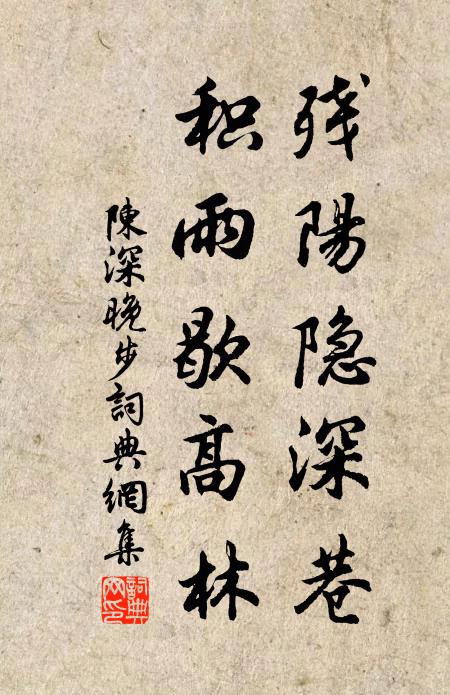 残陽隐深巷
积雨歇高林
陳深晚步詞典網集
詞典网印